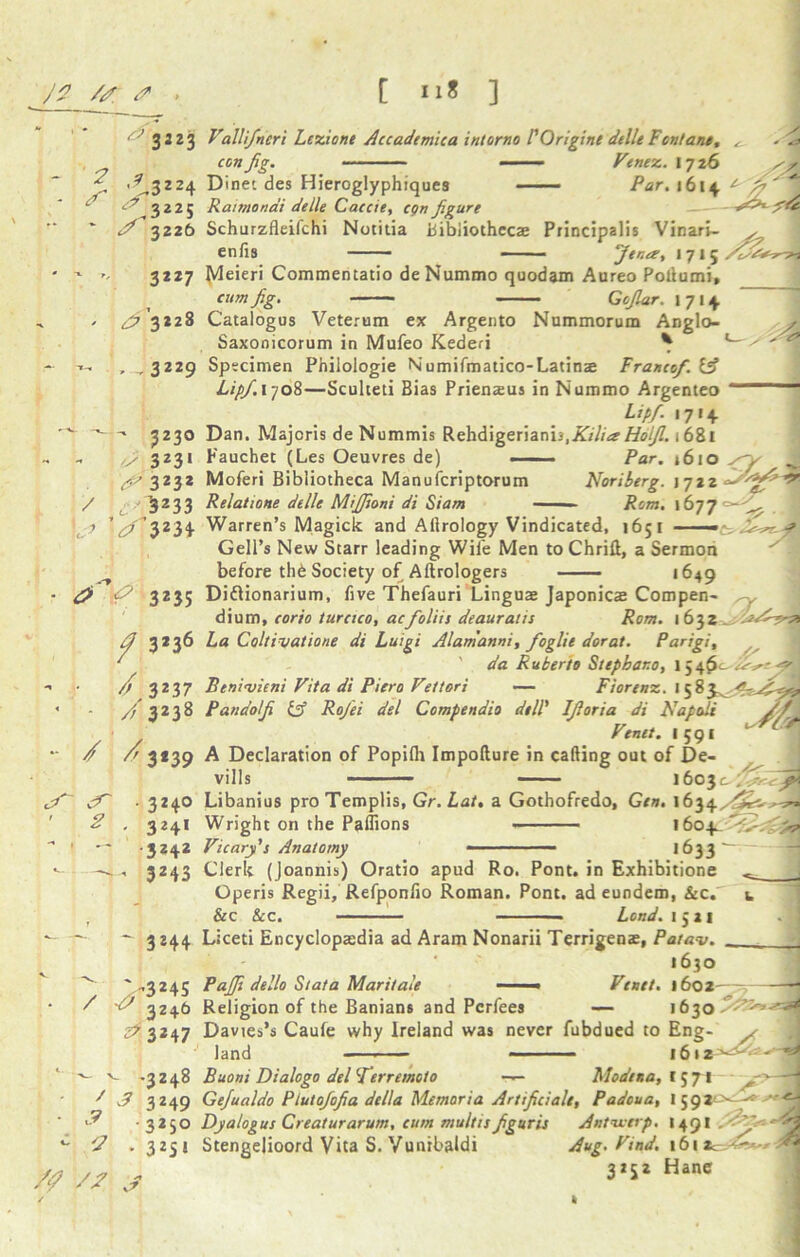 [ 118 ]
3223 Vallisneri Lezione Accademica intorno l'Origine delle Fontane,
con fig. —— —— Venez. 1726
3224 Dinet des Hieroglyphiques —— Par. 1614
3225 Raimondi delle Caccie, con figure
3226 Schurzfleischi Notitia Bibliothecæ Principalis Vinari-
ensis —— —— Jenæ, 1715
3227 Meieri Commentatio de Nummo quodam Aureo Postumi,
cum fig. —— —— Goslar. 1714
3228 Catalogus Veterum ex Argento Nummorum Anglo-
Saxonicorum in Museo Kederi
3229 Specimen Philologie Numismatico-Latinæ Francof. &
Lips. 1708—Sculteti Bias Prienæus in Nummo Argenteo
Lips. 1714
3230 Dan. Majoris de Nummis Rehdigerianis, Kiliæ Holst. 1681
3231 Fauchet (Les Oeuvres de) —— Par. 1610
3232 Moseri Bibliotheca Manuscriptorum Noriberg. 1722
3233 Relatione delle Missioni di Siam —— Rom. 1677
3234 Warren's Magick and Astrology Vindicated, 1651 ——
Gell's New Starr leading Wise Men to Christ, a Sermon
before the Society of Astrologers —— 1649
3235 Dictionarium, sive Thesauri Linguæ Japonicæ Compen-
dium, corio turcico, ac foliis deauratis Rom. 1632
3236 La Coltivatione di Luigi Alamanni, foglie dorat. Parigi,
da Ruberto Stephano, 1546
3237 Benivieni Vita di Piero Vettori — Fiorenz. 1583
3238 Pandolfi & Rosei del Compendio dell' Istoria di Napoli
Venet. 1591
3239 A Declaration of Popish Imposture in casting out of De-
vills —— —— 1603
3240 Libanius pro Templis, Gr. Lat. a Gothofredo, Gen. 1634
3241 Wright on the Passions —— 1604
3242 Vicary's Anatomy —— 1633
3243 Clerk (Joannis) Oratio apud Ro. Pont. in Exhibitione
Operis Regii, Responsio Roman. Pont. ad eundem, &c.
&c &c. —— —— Lond. 1521
3244 Liceti Encyclopædia ad Aram Nonarii Terrigenæ, Patav.
1630
3245 Passi dello Stata Maritale —— Venet. 1602
3246 Religion of the Banians and Persees — 1630
3247 Davies's Cause why Ireland was never subdued to Eng-
land —— —— 1612
3248 Buoni Dialogo del Terremoto — Modena, 1571
3249 Gesualdo Plutosofia della Memoria Artificiale, Padoua, 1592
3250 Dyalogus Creaturarum, cum multis figuris Antwerp. 1491
3251 Stengelioord Vita S. Vunibaldi Aug. Vind. 1612
3252 Hanc